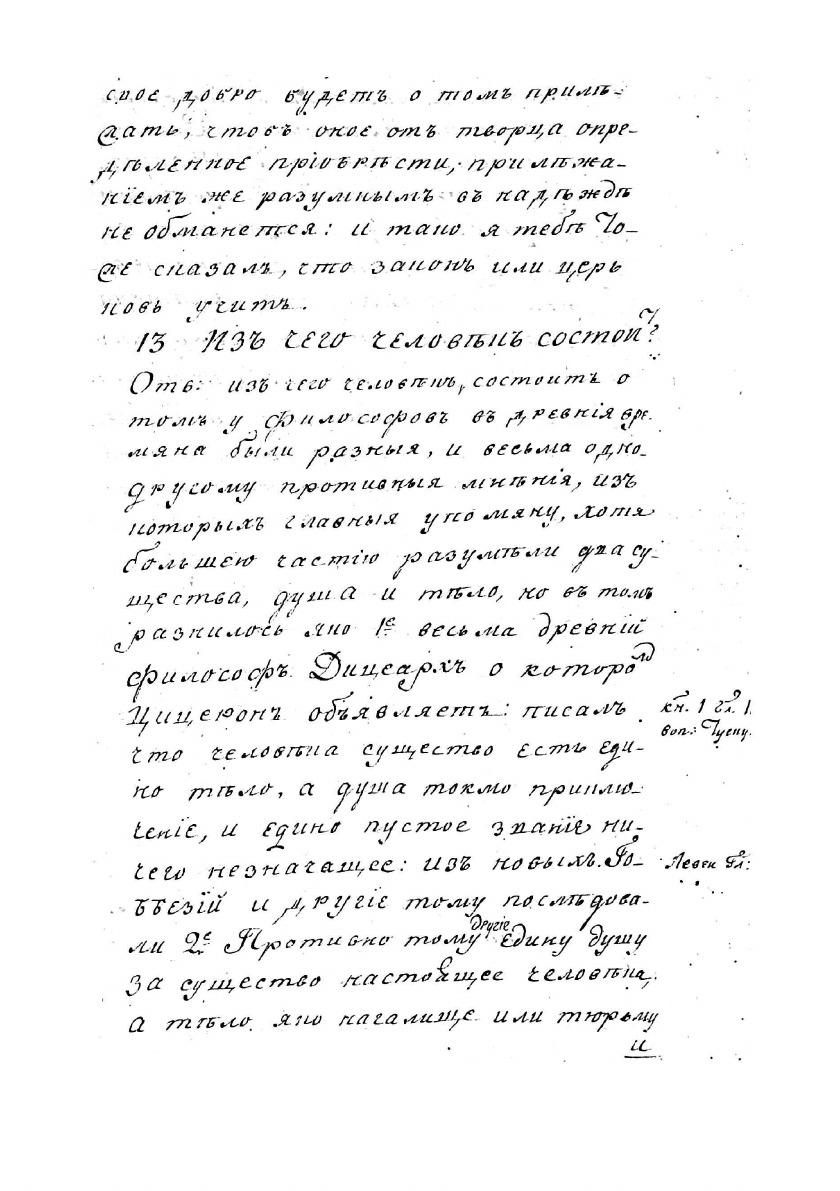 свое добро будетъ о томъ прилѣ-
жать, чтобъ оное отъ творца опре-
дѣленное пріобрѣсти, прилѣжа-
ніемъ же разумнымъ въ надѣждѣ
не обманется: и тако я тебѣ ко-
е сказалъ, что законъ или цер
ковь учитъ.
13 Изъ чего человѣкъ состоитъ?
Отв: изъ чего человѣкъ, состоитъ о
томъ у философовъ въ древнія вре-
мяна были разныя, и весьма одно-
другому противныя мнѣнія, изъ
которыхъ главныя упомяну, хотя
большею частію разумѣли два су-
щества, душа и тѣло, но въ томъ
разнилось яко 1е весьма древній
философъ Дицеархъ о которомъ
Цицеронъ объявляетъ: писалъ
что человѣка существо есть еди-
но тѣло, а душа токмо приклю-
ченіе, и едино пустое званіе ни-
чего незначащее: изъ новыхъ Го-
ббезій и другіе тому послѣдова-
ли 2е Противно тому другіе едину душу
за существо настоящее человѣка,
а тѣло яко влагалище или тюрьму
и
кн. 1 гл. 1.
воп: Туску.
Левек гл: